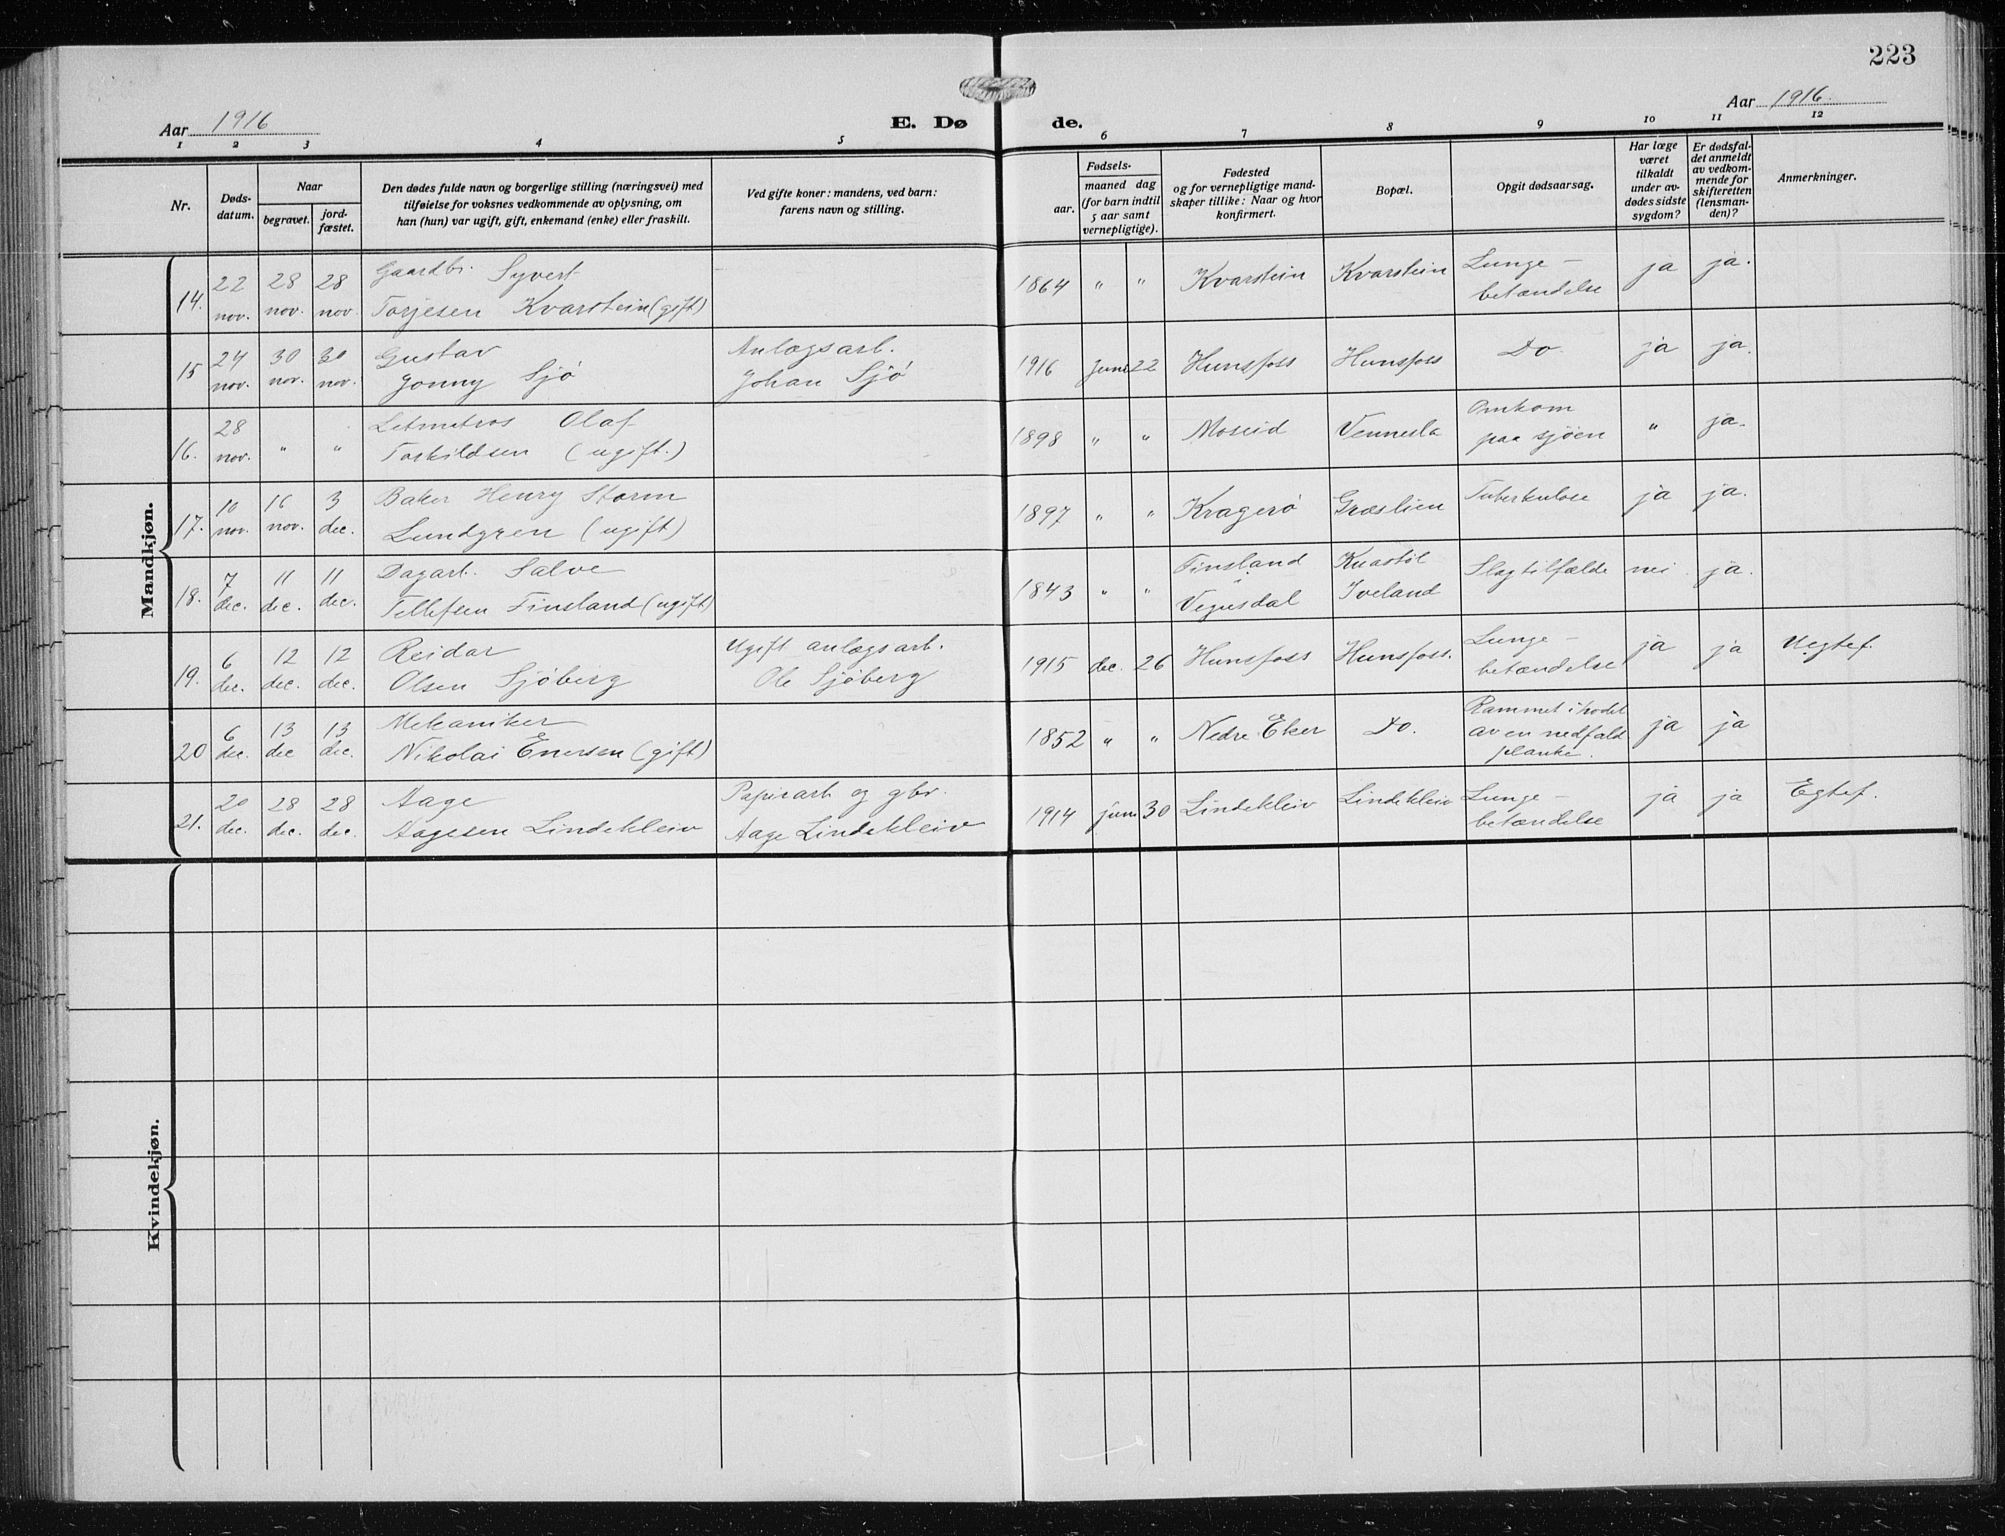 223
Aar 1916
Aar 1916.
E. Dø
de.
1 2 3 4 5 6 7 8 9 10 11 12
Nr.
Døds-
datum.
Naar
begravet.
jord-
fæstet.
Den dødes fulde navn og borgerlige stilling (næringsvei) med
tilføielse for voksnes vedkommende av oplysning, om
han (hun) var ugift, gift, enkemand (enke) eller fraskilt.
Ved gifte koner: mandens, ved barn:
farens navn og stilling.
Fødsels-
aar.
maaned dag
(for barn indtil
5 aar samt
vernepligtige).
Fødested
og for vernepligtige mand-
skaper tillike: Naar og hvor
konfirmert.
Bopæl.
Opgit dødsaarsag.
Har læge
været
tilkaldt
under av-
dødes sidste
sygdom?
Er dødsfal-
det anmeldt
av vedkom-
mende for
skifteretten
(lensman-
den)?
Anmerkninger.
Mandkjøn.
14. 22 nov. 28 nov. 28 nov. Gaardbr. Syvert
Torjesen Kvarstein (gift) 1864 " " Kvarstein Kvarstein Lunge-
betændelse ja ja.
15 24 nov. 30 nov. 30 nov. Gustav
Jonny Sjø Anlægsarb.
Johan Sjø 1916 juni 22 Hunsfoss Hunsfoss Do. ja ja.
16. 28 nov. " " Letmatros Olaf
Torkildsen (ugift.) 1898 " " Moseid Vennesla Omkom
paa sjøen " ja.
17. 10 nov. 16 nov. 3 dec. Baker Henry Storm
Lundgren (ugift) 1897 " " Kragerø Græslien Tuberkulose ja ja.
18. 7 dec. 11 dec. 11 dec. Dagarb. Salve
Tellefsen Finsland (ugift) 1843 " " Finsland
Vegusdal
Iveland Slagtilfælde nei ja.
19. 6 dec. 12 dec. 12 dec. Reidar
Olsen Sjøberg Ugift anlægsarb.
Ole Sjøberg 1915 dec. 26 Hunsfoss Hunsfoss. Lunge-
betændelse ja ja Uegtef.
20 6 dec. 13 dec 13 dec. Mekaniker
Nikolai Enersen (gift) 1852 " " Nedre Eker Do. Rammet i hodet
av en nedfald
planke. ja ja
21. 20 dec. 28 dec. 28 dec. Aage
Aagesen Lindekleiv Papirarb og gbr.
Aage Lindekleiv 1914 juni 30 Lindekleiv Lindekleiv Lunge-
betændelse ja ja Egtef.
Kvindekjøn.